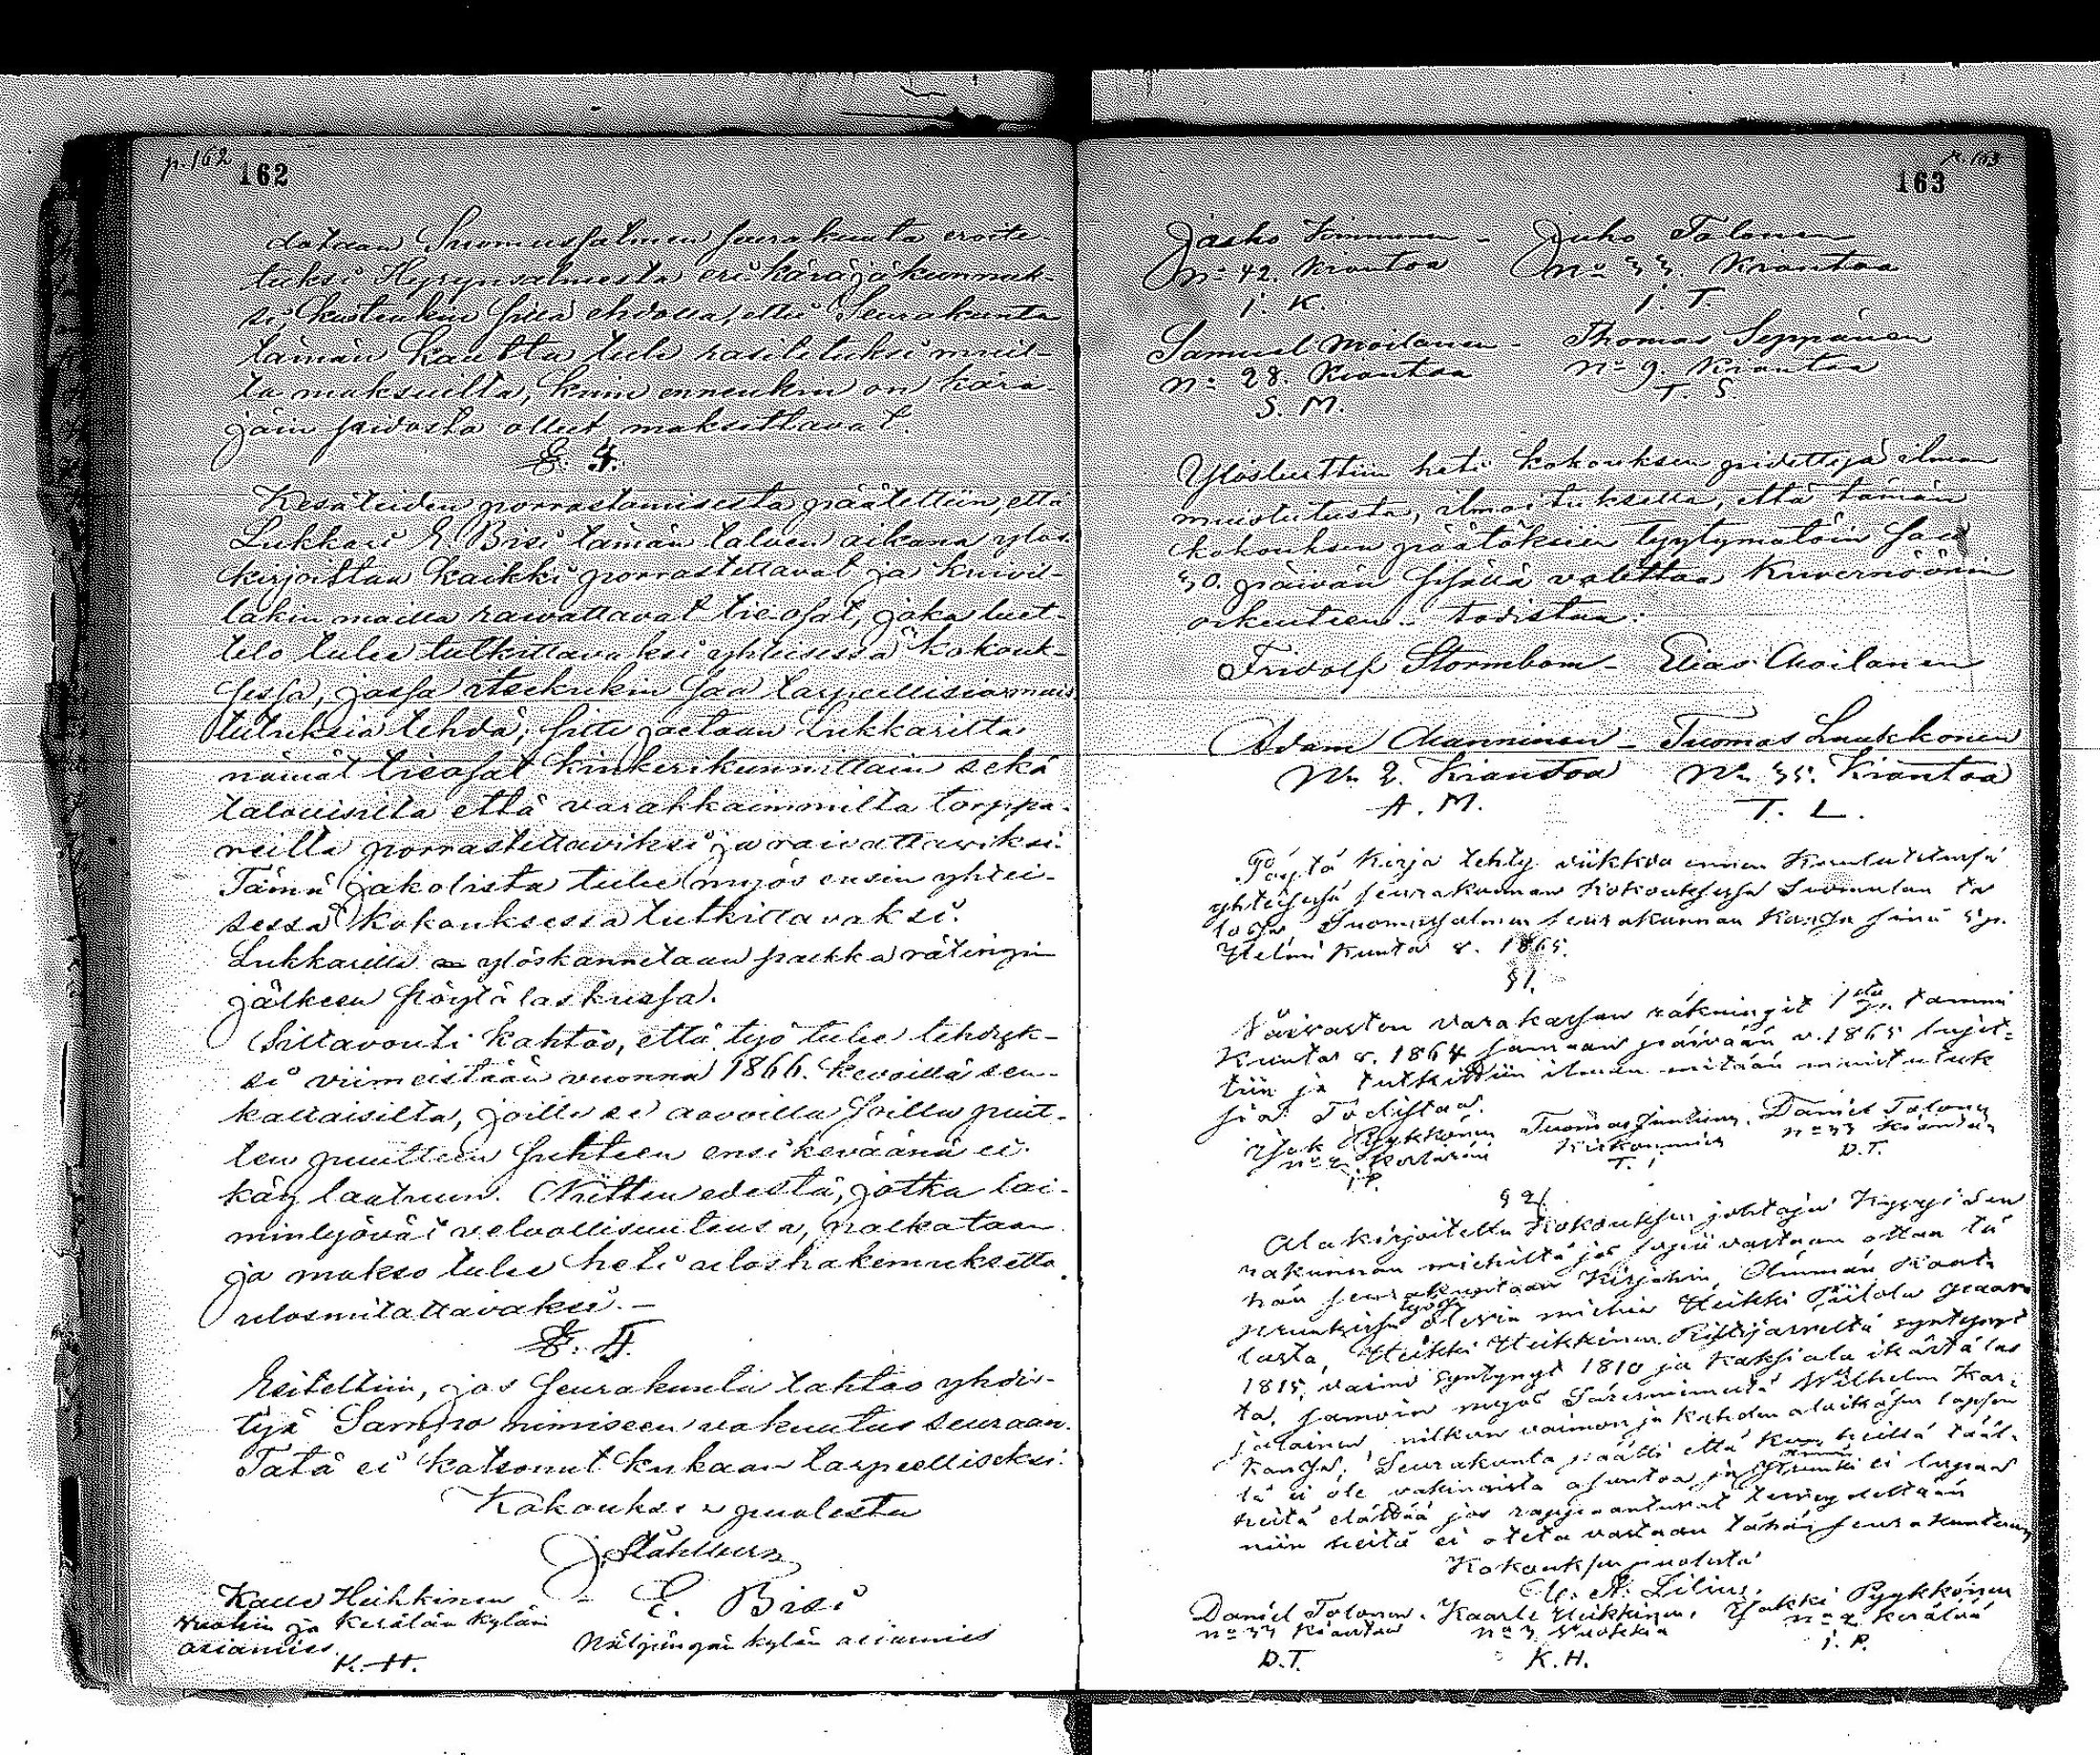 p. 162
162
dataan Suomussalmen seurakunta eroite
tuksi Hyrynsalmesta eri käräjäkunnak-
si, kuitenkin sillä ehdolla, että Seurakunta
tämän kautta tulee rasitetuksi muil-
ta maksuilta, kuin ennenkin on kärä-
jäin pidosta ollut maksettavat.
§. 3.
Kesäteiden porrastamisesta päätettiin, että
Lukkari E Bisi tämän talven aikana ylös
kirjoittaa kaikki porrastettavat ja kuivil-
lakin mailla raivattavat tie-osat, joka luet-
telo tulee tutkittavaksi yhteisessä kokouk-
sessa, jossa itsekukin saa tarpeellisia muis
tutuksia tehdä; sitte jaetaan Lukkarilta
nämät tieosat kinkerikunnittain sekä
talouisilta että varakkaimmilta torppa-
reilta porrastettaviksi ja raivattaviksi.
Tämä jakolista tulee myös ensin yhtei-
sessä kokouksessa tutkittavaksi.
Lukkarille ylöskannetaan palkka rätingin
jälkeen pöytälaskussa.
Siltavouti kahtoo, että työ tulee tehdyk-
si viimeistään vuonna 1866. kevoillä sen-
kaltaisilta, joille se aavoilla soilla puit-
ten puutteen suhteen ensi keväänä ei
käy laatuun. Niitten edestä, jotka lai-
minlyövät velvollisuutensa, palkataan
ja makso tulee heti uloshakemuksetta
ulosmitattavaksi. —
§. 4.
Esiteltiin, jos seurakunta tahtoo yhdis-
tyä Sampo nimiseen vakuutus seuraan.
Tätä ei katsonut kukaan tarpeelliseksi.
Kokouksen puolesta
J. Ståhlberg
Kalle Heikkinen - E. Bisi
Vuokin ja Kerälän kylän
asiamies Näljängän kylän asiamies
K. H.
p. 163
163
Jaako Kinnunen - Juho Tolonen
No 42. Kiantaa No 33. Kiantaa
J. K. J. T.
Samuel Moilanen - Thomas Seppänen
No 28. Kiantaa No 9. Kiantaa
S. M. T. S.
Ylösluettiin heti kokouksen pidettyä ilman
muistutusta, ilmoituksella, että tämän
kokouksen päätöksiin tyytymätöin saa
30. päivän sisällä valittaa Kuvernöörin
oikeuteen. todistaa:
Fridolf Stormbom - Elias Moilanen
Adam Manninen - Tuomas Luukkonen
No 2. Kiantaa No 35. Kiantaa
A. M. T. L.
Pöytä Kirja tehty viikkoa ennen Kuulutetussa
yhteisessä seurakunnan Kokouksessa Suomulan ta
lossa Suomussalmen seurakunnan Kanssa sinä 5 p.
Helmi Kuuta v. 1865.
§1.
Vaivasten varakassan räkningit 1stä p. tammi
Kuuta v. 1864 samaan päivään v. 1865 lujet-
tiin ja tutkittiin ilman mitään muistutuk
sia Todistaa.
Jak Pyykkönen Tuomas Juntunen. Daniel Tolonen
No 2 Kerälän Kirkonmies No 33 Kianta
J. P. T. J. D.T.
§ 2.
Alakirjoitettu Kokouksen johtaja Kysyi seu
rakunnan miehiltä jos sopii vastaan ottaa tä
hän seurakuntaan Kirjohin, Ämmän Ruuk-
työssä
lasta, Heikki Heikkinen Ristijärveltä syntynyt
1815, vaimo syntynyt 1810 ja Kaksi ala ikäistä las
ta, samoin myös Wilhelm Kar-
jalainen, nitkun vaimon ja kahden alaikäsen lapsen
Kanssa; Seurakunta päätti että kun heillä tääl-
lä ei ole vakinaista asuntoa ja ei lupaa
heitä elättää jos
niin heitä ei oteta vastaan tähän seurakuntaan
Kokouksen puolesta
A. Lilius.
Daniel Tolonen. Kaarle Heikkinen. Jakki Pyykkönen
No 33 Kiantaa No 3 Vuokkia No 2 Kerälää
D.T. K.H. J. P.